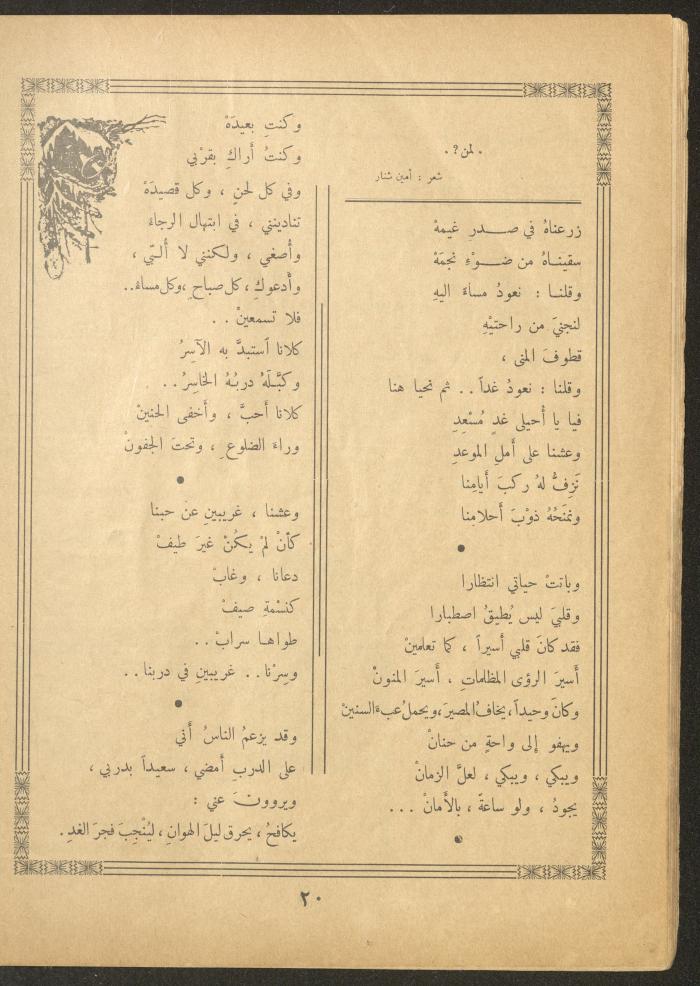 . لمن ? .
شعر : أمين شنار
زرعناهُ في صـدرِ غيمهْ
سقيناهُ من ضـوْءِ نجمَهْ
وقلنـا : نعودُ مساءً اليهِ
لنجنيَ من راحتيْهِ
قطوفَ المنى ،
وقلنا : نعودُ غداً . . ثم نحيا هنا
فيا يا أُحيلى غدٍ مُسْعِدِ
وعشنا على أَملِ الموعدِ
نَزِفُّ لهُ ركبَ أَيامِنا
ونمنَحُهُ ذوْبَ أَحلامِنا
وباتتْ حياتي انتظارا
وقلبيَ ليس يُطيقُ اصطبارا
فقد كانَ قلبي أَسيراً ، كما تعلمينْ
أَسيرَ الرؤى المظلماتِ ، أَسيرَ المنونْ
وكانَ وحيداً، يخافُ المصيرَ، ويحملُ عبءَ السنينْ
ويهفو إِلى واحةٍ من حنانْ
ويبكي ، ويبكي ، لعلَّ الزمانْ
يجودُ ، ولو ساعةً ، بالأَمانْ . . .
وكنت بعيدَهْ
وكنتُ أَراكِ بقرْبي
وفي كل لحنٍ ، وكل قصيدَهْ
تنادينني ، في ابتهال الرجاءْ
وأُصغي ، ولكنني لا أُلبّي ،
وأَدعوكِ ، كل صباحٍ ، وكل مساءْ . .
فلا تسمعينْ . .
كلانا اَستبدَّ به الآسِرُ
وكبَّـلَهُ دربُـهُ الخاسِرُ . .
كلانا أَحبَّ ، وأَخفى الحنينْ
وراءَ الضلوعِ ، وتحتَ الجفونْ
وعشنا ، غريبينِ عن حبنا
كأَنْ لمْ يكُنْ غيرَ طيفْ
دعانا ، وغابْ
كنسْمةِ صيفْ
طواهـا سرابْ . .
وسِرْنا . . غريبينِ في دربنا . .
وقد يزعمُ الناسُ أَني
على الدربِ أَمضي ، سعيداً بدربي ،
ويروونَ عني :
يكافحُ ، يحرق ليلَ الهوانِ ، ليُنْجِبَ فجرَ الغدِ .
٢٠